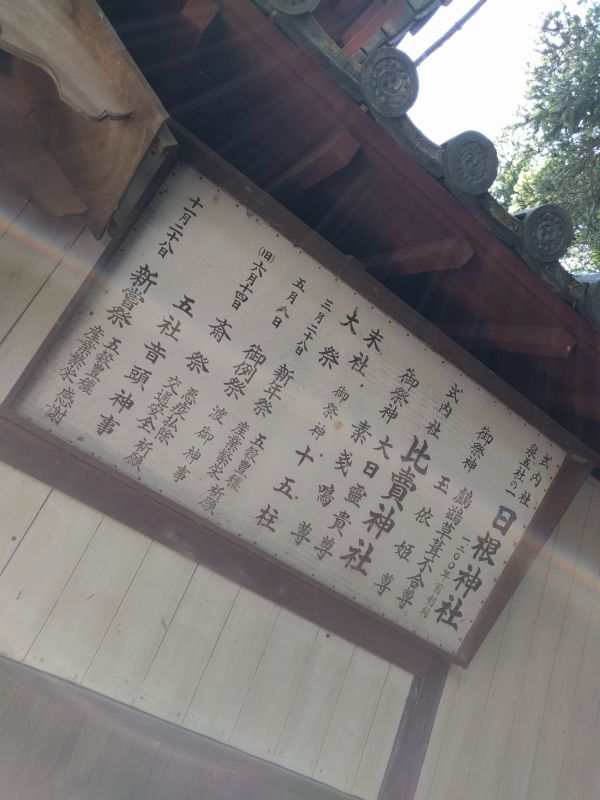 式内社
泉五社の一
日根神社
一二〇〇年前創祀
御祭神
鸕鷀草葺不合尊
玉依姫尊
式内社
比賣神社
御祭神
大日靈貴尊
素戔鳴尊
末社
御祭神
十五柱
大祭
三月二十八日
五月八日
祈年祭
五穀豊穣
産業繁栄祈願
御例祭
渡御神事
(旧)六月十四日
斎祭
悪疫払除
交通安全祈願
五社音頭神事
十一月二十八日
新嘗祭
五穀豊穣
産業繁栄感謝